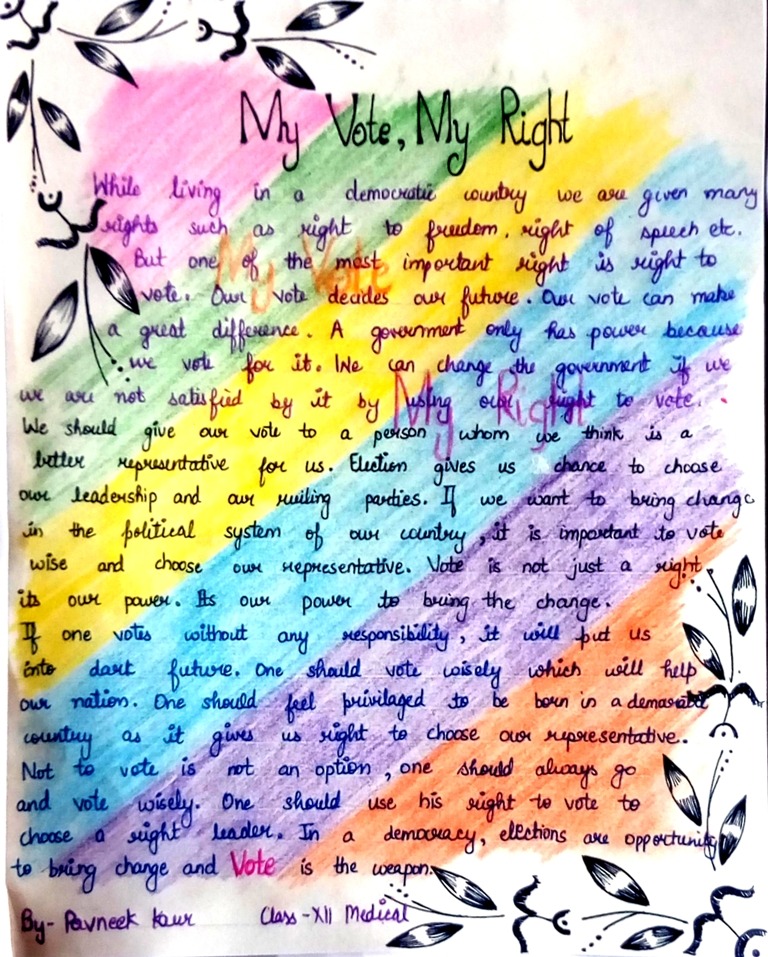 My Vote, My Right
While living in a democratic country we are given many
rights such as right to freedom, right of speech etc.
But one of the most important right is right to
vote. Our vote decides our future. Our vote can make
a great difference. A government only has power because
we vote for it. We can change the government if we
we are not satisfied by it by using our right to vote.
My Vote
My Right
We should give our vote to a person whom we think is a
better representative for us. Election gives us a chance to choose
our leadership and our ruiling parties. If we want to bring change
in the political system of our country, it is important to vote
wise and choose our representative. Vote is not just a right,
its our power. Its our power to bring the change.
If one votes without any responsibility, it will put us
into dark future. One should vote wisely which will help
our nation. One should feel privilaged to be born in a
country as it gives us right to choose our representative..
Not to vote is not an option, one should always go
and vote wisely. One should use his right to vote to
choose a right leader. In a democracy, elections are opportunity
to bring change and Vote is the weapon.
By- Pavneek Kaur Class -XII Medical